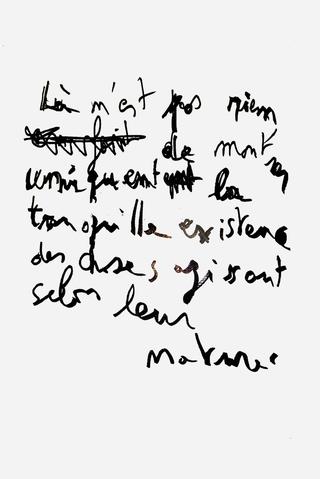 Là n'est pas rien
de montrer
la
tranquille existence
des choses agissant
selon leur
nature